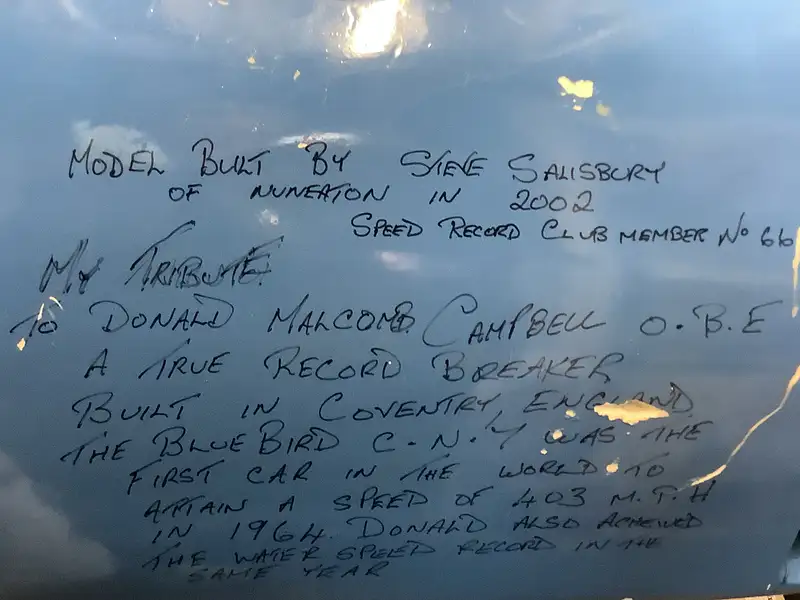 MODEL BUILT BY STEVE SALISBURY
OF NUNEATON IN 2002
SPEED RECORD CLUB MEMBER No 66
MY TRIBUTE
TO DONALD MALCOMB CAMPBELL O.B.E
A TRUE RECORD BREAKER
BUILT IN COVENTRY, ENGLAND
THE BLUEBIRD C.N.7 WAS THE
FIRST CAR IN THE WORLD TO
ATTAIN A SPEED OF 403 M.P.H
IN 1964. DONALD ALSO ACHEIVED
THE WATER SPEED RECORD IN THE
SAME YEAR